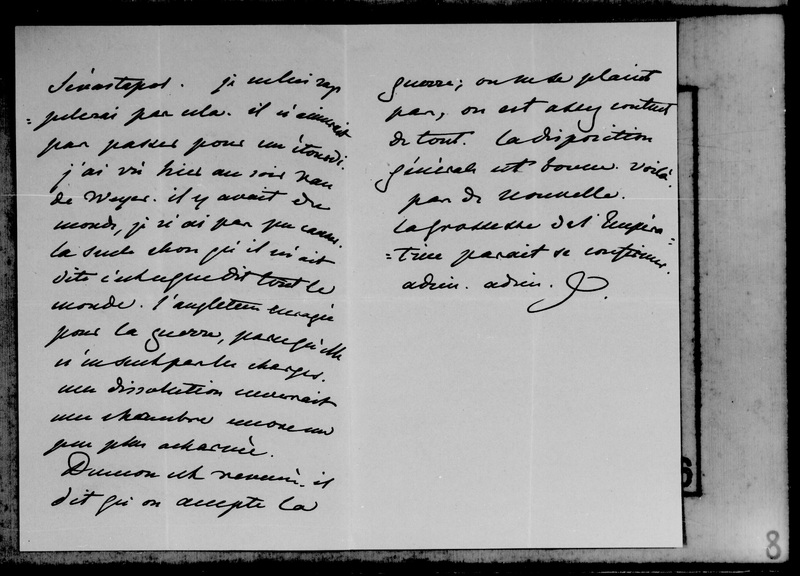 Sévastopol. je ne lui rap
=pelerai pas cela. il n'aimerait
pas passer pour un étourdi.
j'ai vu hier au soir Van
de Weyer. il y avait du
monde, je n'ai pas pu causer.
la seule chose qu'il m'ait
dite c'est ce que dit tout le
monde. l'angleterre enragée
pour la guerre, parce qu'elle
n'en sent pas les charges.
une dissolution enverrait
une chambre encore un
peu plus acharnée.
Dumon est revenu. il
dit qu'on accepte la
guerre; on ne se plaint
pas, on est assez content
de tout. la disposition
générale est bonne. voilà
pas de nouvelle.
la grossesse de l'Impéra=
=trice parait se confirmer.
adieu. adieu.
8